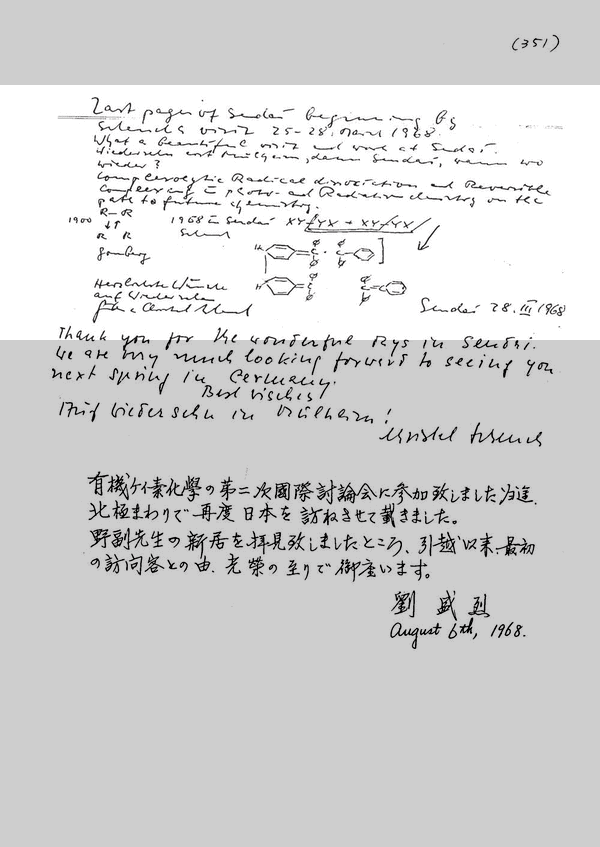 (351)
Last pages of Sendai beginning by
Schencks visit 25-28. March 1968.
What a beautiful visit and work at Sendai.
Wiedersehn erst Mülheim, dann Sendai, wenn wo
wieder?
Radical dissociation and Reversible
in photo- and Radiation chemistry on the
path to future chemistry.
R-R
1900 ↓↑ 1968 in Sendai XYfYX + XYfYX
R R Schenck
Gomberg
Herzlichste Wünsche
auf Wiedersehen
Sendai 28. III 1968
Thank you for the wonderful days in Sendai.
We are very much looking forward to seeing you
next spring in Germany.
Best wishes!
Auf Wiedersehn in Mülheim!
Christel Schenck
有機ケイ素化學の第二次國際討論会に参加致しました
北極まわりで再度日本を訪ねさせて戴きました。
野副先生の新居を拝見致しましたところ、引越以来、最初
の訪问客との由、光榮の至りで御座います。
劉 盛 烈
August 6th, 1968.